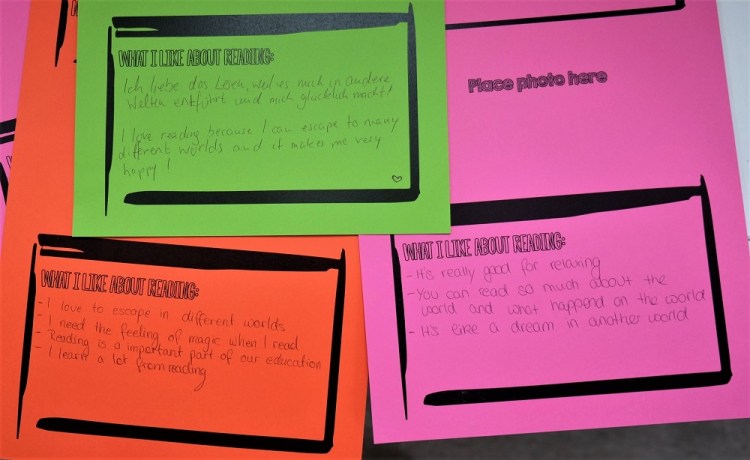 WHAT I LIKE ABOUT READING:
Ich liebe das Lesen, weil es mich in andere
Welten entführt und mich glücklich macht!
I love reading because I can escape to many
different worlds and it makes me very
happy!
Place photo here
WHAT I LIKE ABOUT READING:
- I love to escape in different worlds
- I need the feeling of magic when I read
- Reading is a important part of our education
- I learn a lot from reading
WHAT I LIKE ABOUT READING:
- It's really good for relaxing
- You can read so much about the
world and what happend on the world
- It's like a dream in another world